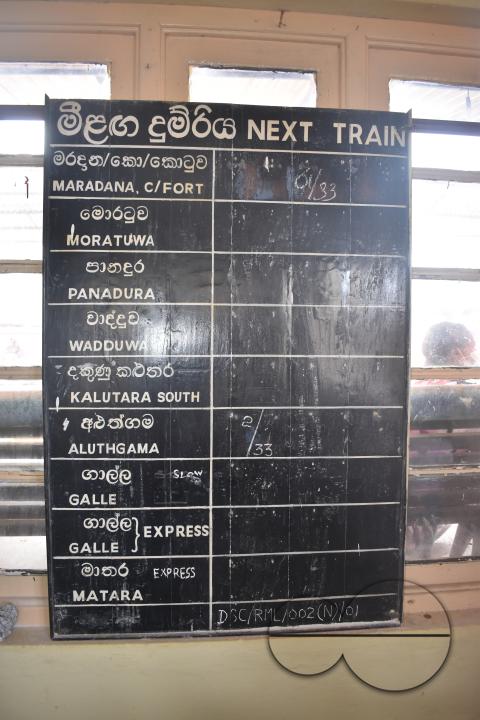 මීළඟ දුම්රිය NEXT TRAIN
මරදාන/කො/කොටුව
MARADANA, C/FORT 01/33
මොරටුව
MORATUWA
පානදුර
PANADURA
වාද්දුව
WADDUWA
දකුණු කළුතර
KALUTARA SOUTH
අළුත්ගම 2/33
ALUTHGAMA
ගාල්ල SLOW
GALLE
ගාල්ල
GALLE } EXPRESS
මාතර EXPRESS
MATARA
DSC/RML/002(N)/01